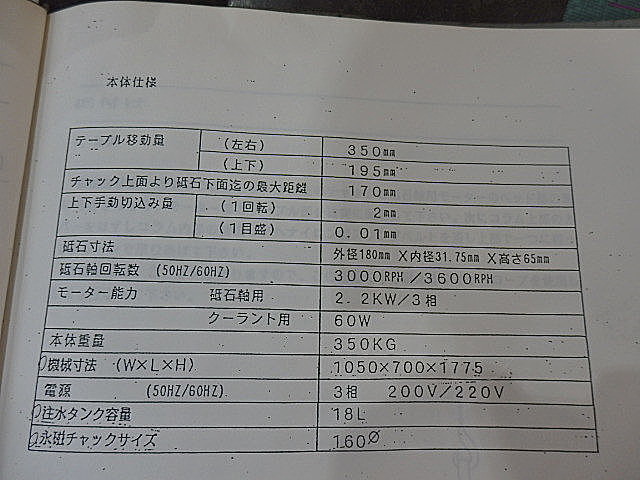 本体仕様
テーブル移動量 (左右) 350mm
(上下) 195mm
チャック上面より砥石下面迄の最大距離 170mm
上下手動切込み量 (1回転) 2mm
(1目盛) 0.01mm
砥石寸法 外径180mm X内径31.75mm X高さ65mm
砥石軸回転数 (50HZ/60HZ) 3000RPH/3600RPH
モーター能力 砥石軸用 2.2KW/3相
クーラント用 60W
本体重量 350KG
機械寸法 (W×L×H) 1050×700×1775
電源 (50HZ/60HZ) 3相 200V/220V
注水タンク容量 18L
永磁チャックサイズ 160Ø